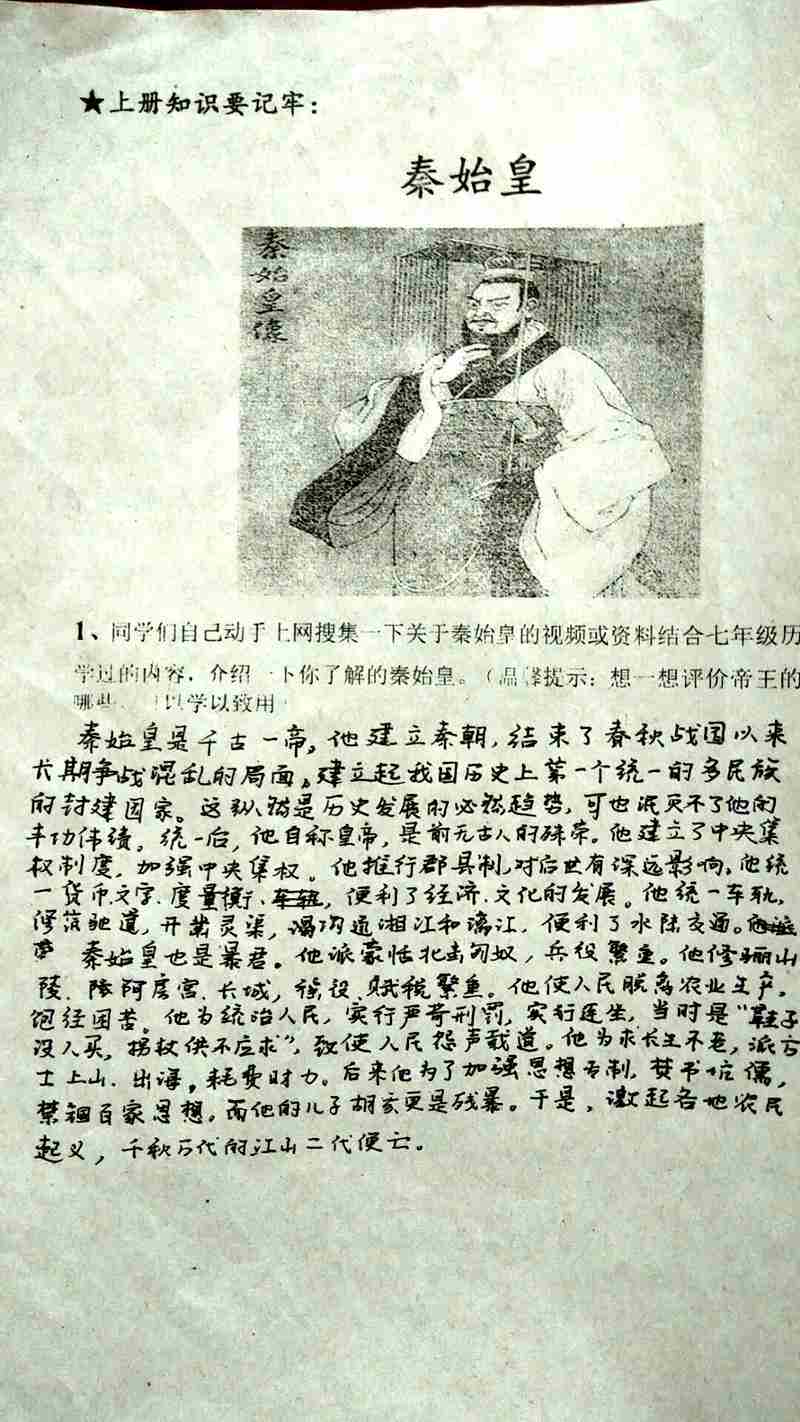 ★上册知识要记牢:
秦始皇
秦始皇像
1、同学们自己动手上网搜集一下关于秦始皇的视频或资料结合七年级历
学过的内容,介绍一下你了解的秦始皇。(温馨提示:想一想评价帝王的
哪些 以学以致用
秦始皇是千古一帝,他建立秦朝,结束了春秋战国以来
长期争战混乱的局面,建立起我国历史上第一个统一的多民族
的封建国家。这纵然是历史发展的必然趋势,可也泯灭不了他的
丰功伟绩。统一后,他自称皇帝,是前无古人的殊荣。他建立了中央集
权制度,加强中央集权。他推行郡县制,对后世有深远影响,他统
一货币.文字.度量衡、车轨,便利了经济.文化的发展。他统一车轨,
修筑驰道,开凿灵渠,沟通湘江和漓江,便利了水陆交通。
秦始皇也是暴君。他派蒙恬北击匈奴,兵役繁重。他修骊山
陵、阿房宫、长城,徭役、赋税繁重。他使人民脱离农业生产,
饱经困苦。他为统治人民,实行严苛刑罚,实行连坐,当时是“鞋子
没人买,拐杖供不应求”,致使人民怨声载道。他为求长生不老,派方
士上山、出海,耗费财力。后来他为了加强思想专制,焚书坑儒,
禁锢百家思想。而他的儿子胡亥更是残暴。于是,激起各地农民
起义,千秋万代的江山二代便亡。